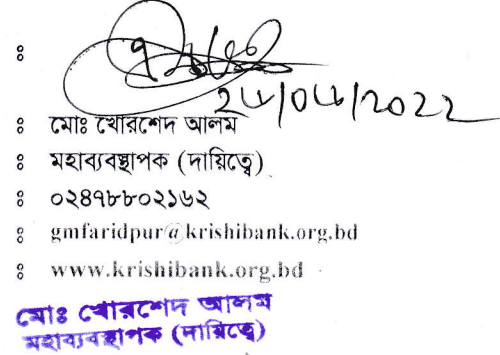 ঃ
ঃ মোঃ খোরশেদ আলম
ঃ মহাব্যবস্থাপক (দায়িত্বে)
ঃ ০২৪৭৮৮০২১৬২
ঃ gmfaridpur@krishibank.org.bd
ঃ www.krishibank.org.bd
মোঃ খোরশেদ আলম
মহাব্যবস্থাপক (দায়িত্বে)